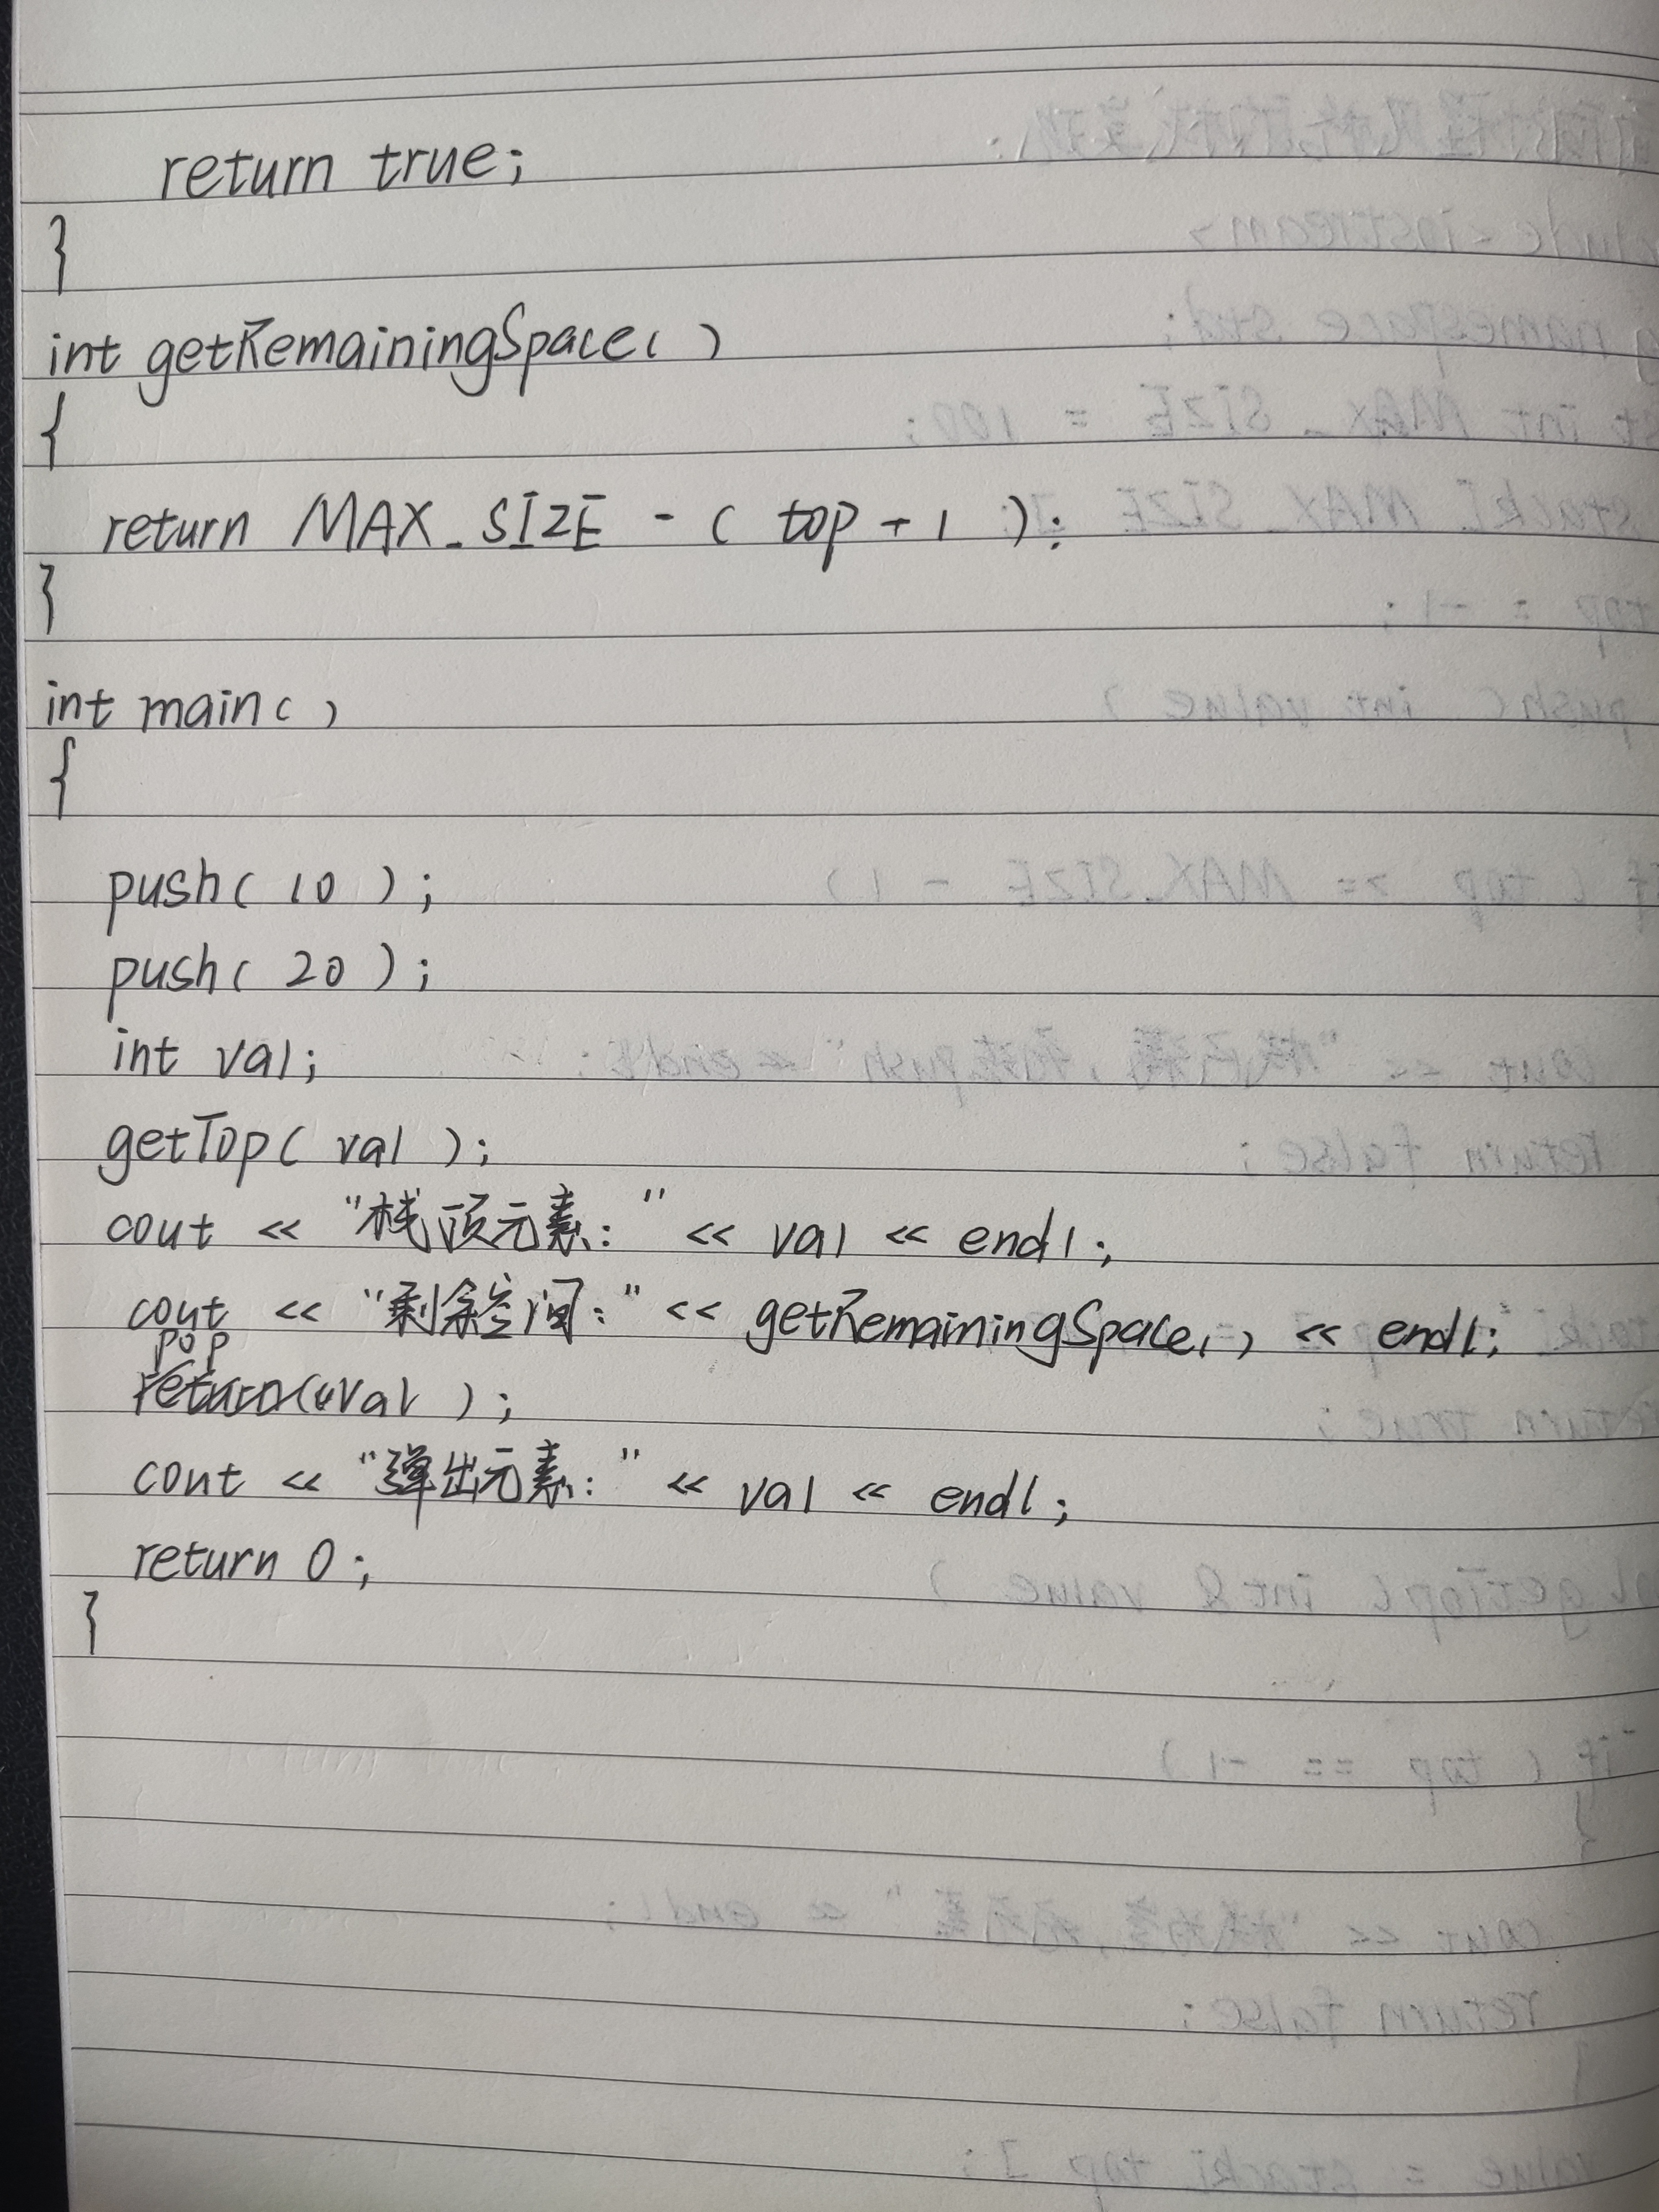 return true;
}
int getRemainingSpace()
{
return MAX_SIZE - ( top + 1 );
}
int main()
{
push( 10 );
push( 20 );
int val;
getTop( val );
cout << "栈顶元素:" << val << endl;
cout << "剩余空间:" << getRemainingSpace() << endl;
pop
return(val );
cout << "弹出元素:" << val << endl;
return 0;
}